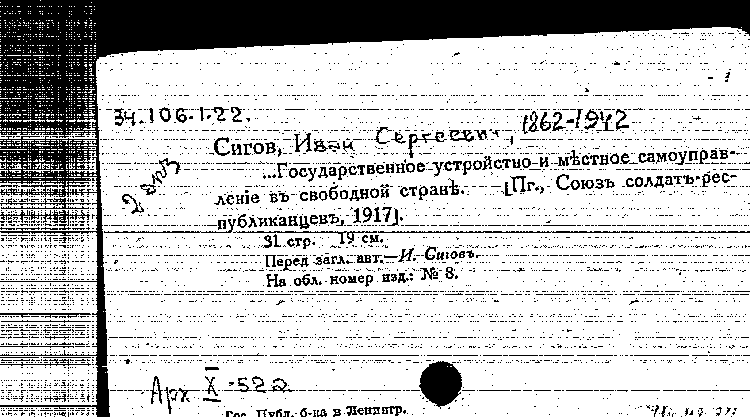 34.106.1.22.
Сигов, Иван Сергеевич, 1862-1942
2 экз
...Государственное устройство и мѣстное самоуправ-
леніе въ свободной странѣ. [Пг., Союзъ солдатъ-рес-
публиканцевъ, 1917].
31 стр. 19 см.
Перед загл. авт.—И. Сиговъ.
На обл. номер изд.: № 8.
Арх X-52а
Гос. Публ. б-ка в Ленингр.